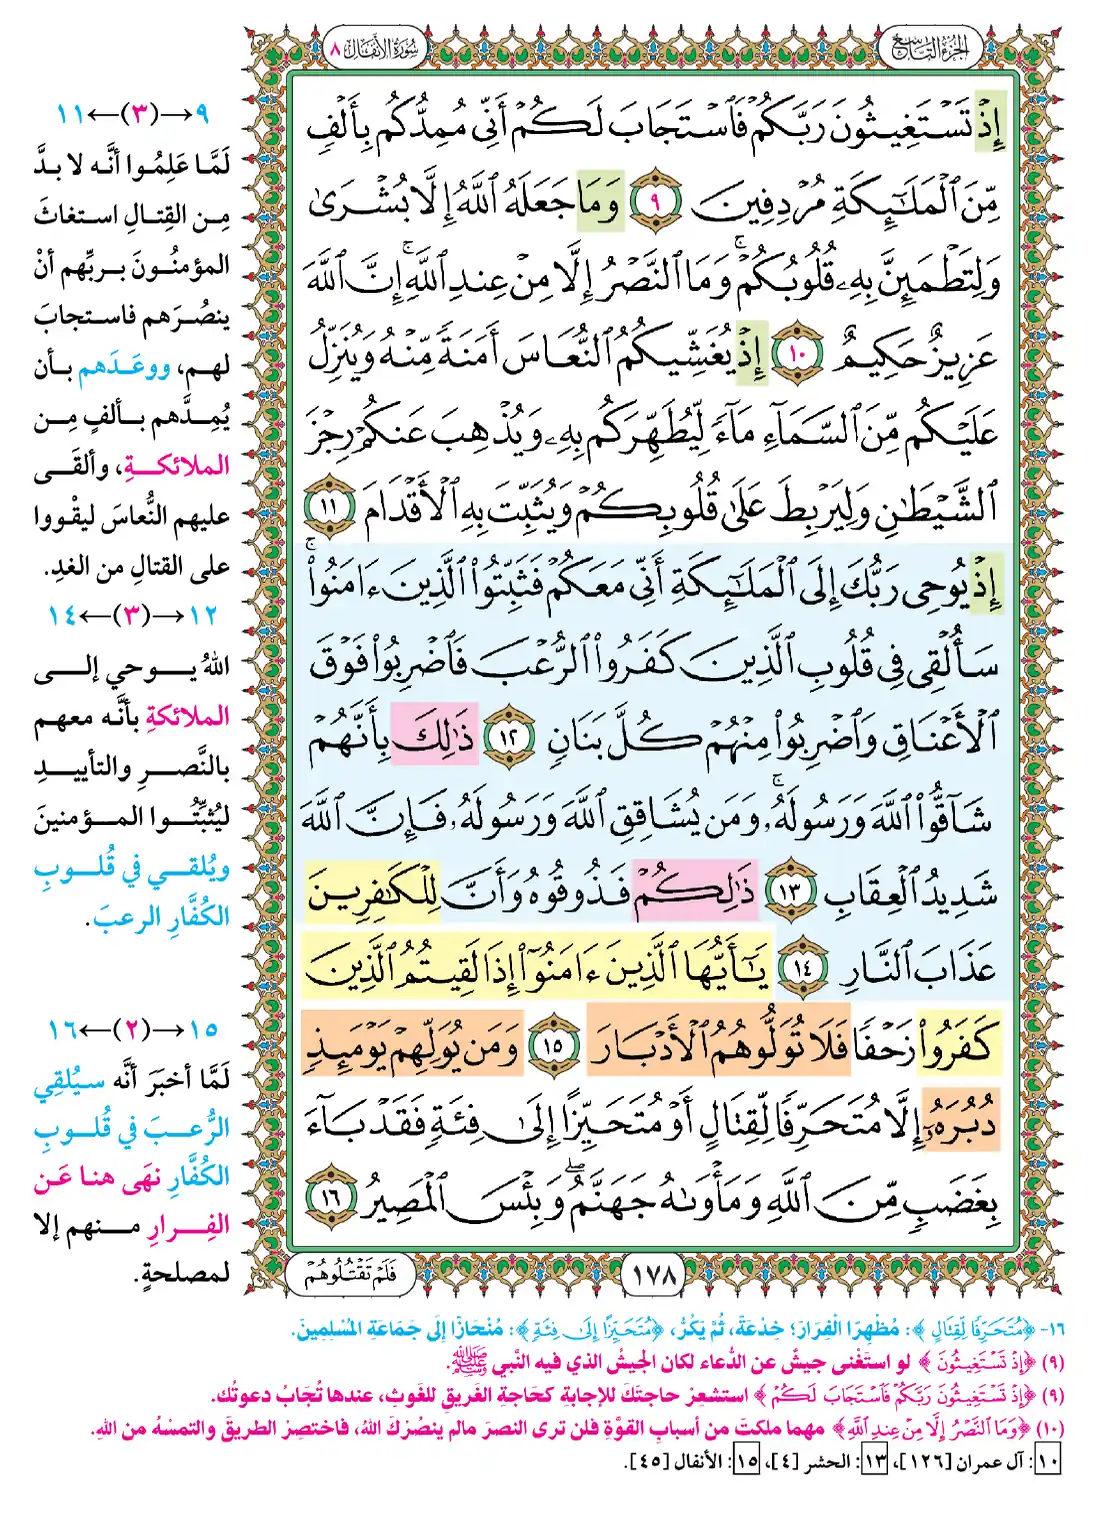 الجزء التاسع
سورة الأنفال ٨
إِذْ تَسْتَغِيثُونَ رَبَّكُمْ فَٱسْتَجَابَ لَكُمْ أَنِّى مُمِدُّكُم بِأَلْفٍ
مِّنَ ٱلْمَلَٰٓئِكَةِ مُرْدِفِينَ ٩ وَمَا جَعَلَهُ ٱللَّهُ إِلَّا بُشْرَىٰ
وَلِتَطْمَئِنَّ بِهِۦ قُلُوبُكُمْ ۚ وَمَا ٱلنَّصْرُ إِلَّا مِنْ عِندِ ٱللَّهِ ۚ إِنَّ ٱللَّهَ
عَزِيزٌ حَكِيمٌ ١٠ إِذْ يُغَشِّيكُمُ ٱلنُّعَاسَ أَمَنَةً مِّنْهُ وَيُنَزِّلُ
عَلَيْكُم مِّنَ ٱلسَّمَآءِ مَآءً لِّيُطَهِّرَكُم بِهِۦ وَيُذْهِبَ عَنكُمْ رِجْزَ
ٱلشَّيْطَٰنِ وَلِيَرْبِطَ عَلَىٰ قُلُوبِكُمْ وَيُثَبِّتَ بِهِ ٱلْأَقْدَامَ ١١
إِذْ يُوحِى رَبُّكَ إِلَى ٱلْمَلَٰٓئِكَةِ أَنِّى مَعَكُمْ فَثَبِّتُوا۟ ٱلَّذِينَ ءَامَنُوا۟ ۚ
سَأُلْقِى فِى قُلُوبِ ٱلَّذِينَ كَفَرُوا۟ ٱلرُّعْبَ فَٱضْرِبُوا۟ فَوْقَ
ٱلْأَعْنَاقِ وَٱضْرِبُوا۟ مِنْهُمْ كُلَّ بَنَانٍ ١٢ ذَٰلِكَ بِأَنَّهُمْ
شَآقُّوا۟ ٱللَّهَ وَرَسُولَهُۥ ۚ وَمَن يُشَاقِقِ ٱللَّهَ وَرَسُولَهُۥ فَإِنَّ ٱللَّهَ
شَدِيدُ ٱلْعِقَابِ ١٣ ذَٰلِكُمْ فَذُوقُوهُ وَأَنَّ لِلْكَٰفِرِينَ
عَذَابَ ٱلنَّارِ ١٤ يَٰٓأَيُّهَا ٱلَّذِينَ ءَامَنُوٓا۟ إِذَا لَقِيتُمُ ٱلَّذِينَ
كَفَرُوا۟ زَحْفًا فَلَا تُوَلُّوهُمُ ٱلْأَدْبَارَ ١٥ وَمَن يُوَلِّهِمْ يَوْمَئِذٍ
دُبُرَهُۥٓ إِلَّا مُتَحَرِّفًا لِّقِتَالٍ أَوْ مُتَحَيِّزًا إِلَىٰ فِئَةٍ فَقَدْ بَآءَ
بِغَضَبٍ مِّنَ ٱللَّهِ وَمَأْوَىٰهُ جَهَنَّمُ ۖ وَبِئْسَ ٱلْمَصِيرُ ١٦
١٧٨
فَلَمْ تَقْتُلُوهُمْ
٩→(٣)←١١
لَمَّا عَلِمُوا أنَّه لا بدَّ
مِن القِتالِ استغاثَ
المؤمنُونَ بربِّهم أنْ
ينصُرَهم فاستجابَ
لهم، ووعَدَهم بأن
يُمِدَّهم بألفٍ مِن
الملائكةِ، وألقَى
عليهم النُّعاسَ ليقْووا
على القتالِ من الغدِ.
١٢→(٣)←١٤
اللهُ يوحي إلى
الملائكةِ بأنَّه معهم
بالنَّصرِ والتأييدِ
ليُثبِّتُوا المؤمنينَ
ويُلقي في قُلوبِ
الكُفَّارِ الرعبَ.
١٥→(٢)←١٦
لَمَّا أخبَرَ أنَّه سيُلقِي
الرُّعبَ في قُلوبِ
الكُفَّارِ نهَى هنا عَن
الفِرارِ منهم إلا
لمصلحةٍ.
١٦- ﴿مُتَحَرِّفًا لِّقِتَالٍ﴾: مُظْهِرًا الْفِرَارَ؛ خِدْعَةً، ثُمَّ يَكُرُّ، ﴿مُتَحَيِّزًا إِلَىٰ فِئَةٍ﴾: مُنْحَازًا إِلَى جَمَاعَةِ الْمُسْلِمِينَ.
(٩) ﴿إِذْ تَسْتَغِيثُونَ﴾ لو استَغْنى جيشٌ عن الدُّعاء لكان الجيشُ الذي فيه النَّبي ﷺ.
(٩) ﴿إِذْ تَسْتَغِيثُونَ رَبَّكُمْ فَٱسْتَجَابَ لَكُمْ﴾ استشعِرْ حاجتَكَ للإجابةِ كحَاجةِ الغَريقِ للغَوثِ، عندها تُجَابُ دعوتُك.
(١٠) ﴿وَمَا ٱلنَّصْرُ إِلَّا مِنْ عِندِ ٱللَّهِ﴾ مهما ملكتَ من أسبابِ القوَّةِ فلن ترى النصرَ مالم ينصُرْكَ اللهُ، فاختصِر الطريقَ والتمسْهُ من اللهِ.
١٠: آل عمران [١٢٦]، ١٣: الحشر [٤]، ١٥: الأنفال [٤٥].